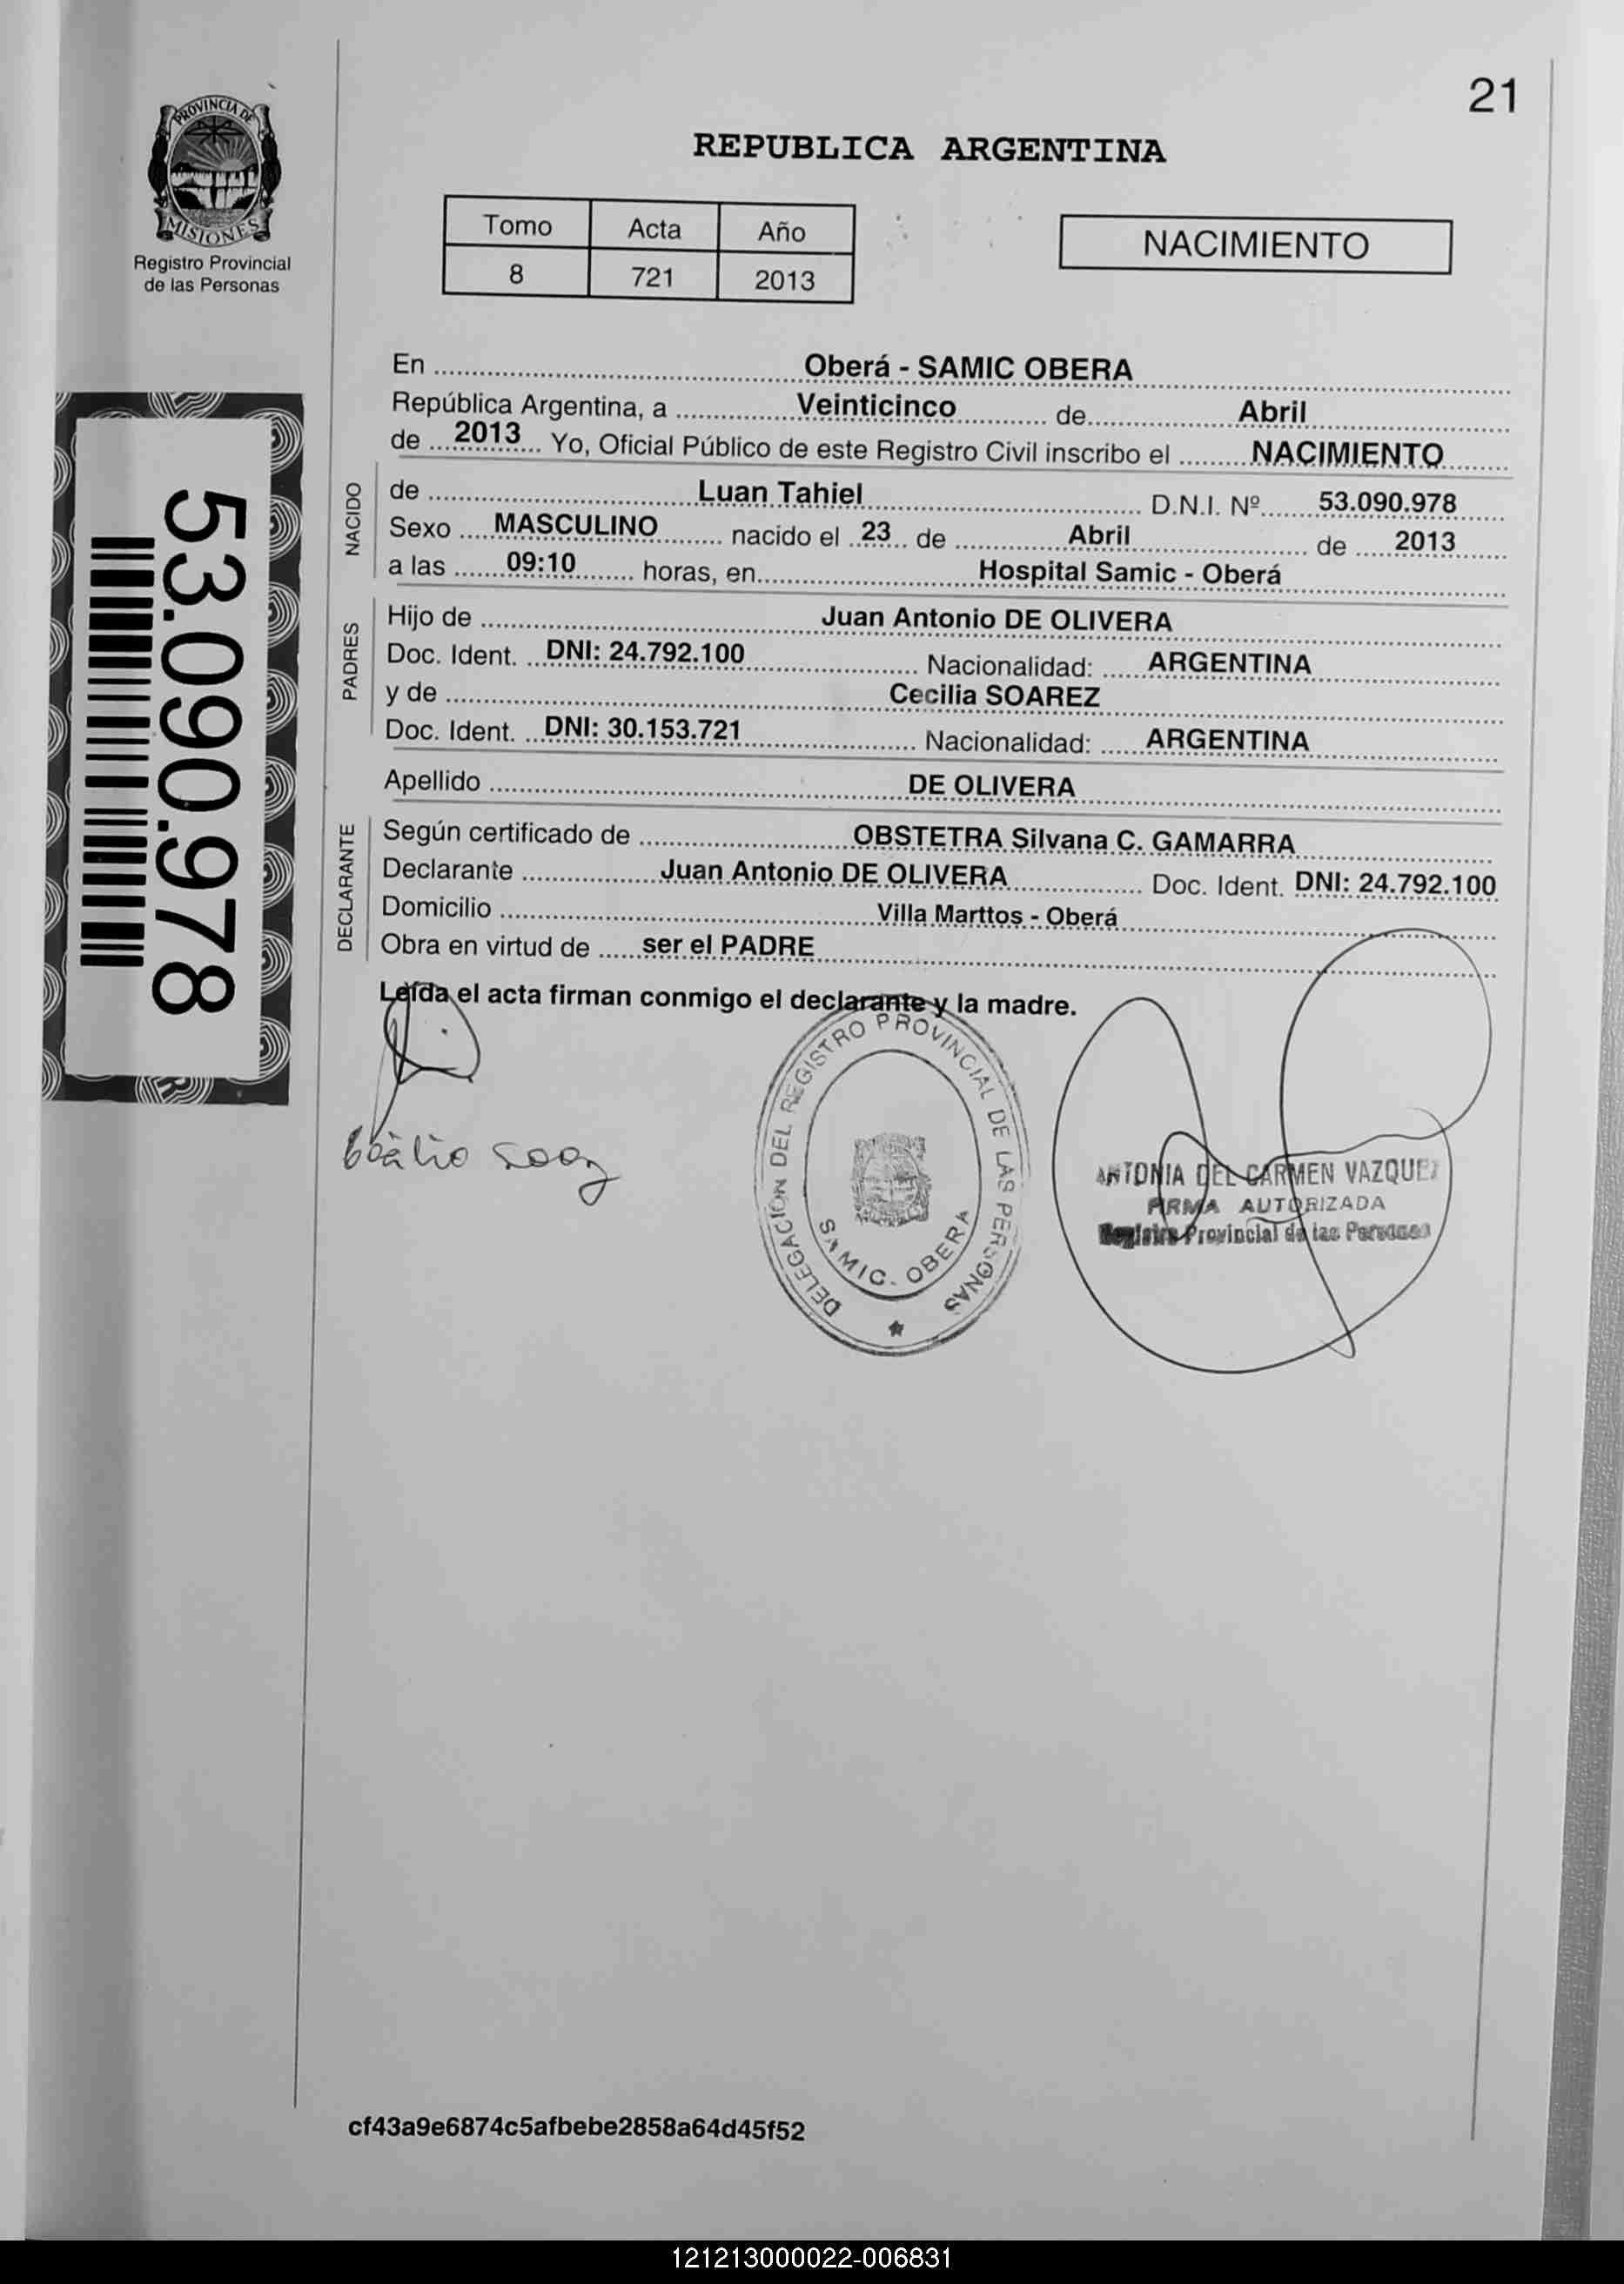 21
PROVINCIA DE
MISIONES
Registro Provincial
de las Personas
REPUBLICA ARGENTINA
Tomo Acta Año
8 721 2013
NACIMIENTO
53.090.978
En Oberá - SAMIC OBERA
República Argentina, a Veinticinco de Abril
de 2013 Yo, Oficial Público de este Registro Civil inscribo el NACIMIENTO
NACIDO
de Luan Tahiel D.N.I. Nº 53.090.978
Sexo MASCULINO nacido el 23 de Abril de 2013
a las 09:10 horas, en Hospital Samic - Oberá
PADRES
Hijo de Juan Antonio DE OLIVERA
Doc. Ident. DNI: 24.792.100 Nacionalidad: ARGENTINA
y de Cecilia SOAREZ
Doc. Ident. DNI: 30.153.721 Nacionalidad: ARGENTINA
Apellido DE OLIVERA
DECLARANTE
Según certificado de OBSTETRA Silvana C. GAMARRA
Declarante Juan Antonio DE OLIVERA Doc. Ident. DNI: 24.792.100
Domicilio Villa Marttos - Oberá
Obra en virtud de ser el PADRE
Leída el acta firman conmigo el declarante y la madre.
DELEGACION DEL REGISTRO PROVINCIAL DE LAS PERSONAS
SAMIC - OBERA
ANTONIA DEL CARMEN VAZQUEZ
FIRMA AUTORIZADA
Registro Provincial de las Personas
cf43a9e6874c5afbebe2858a64d45f52
121213000022-006831